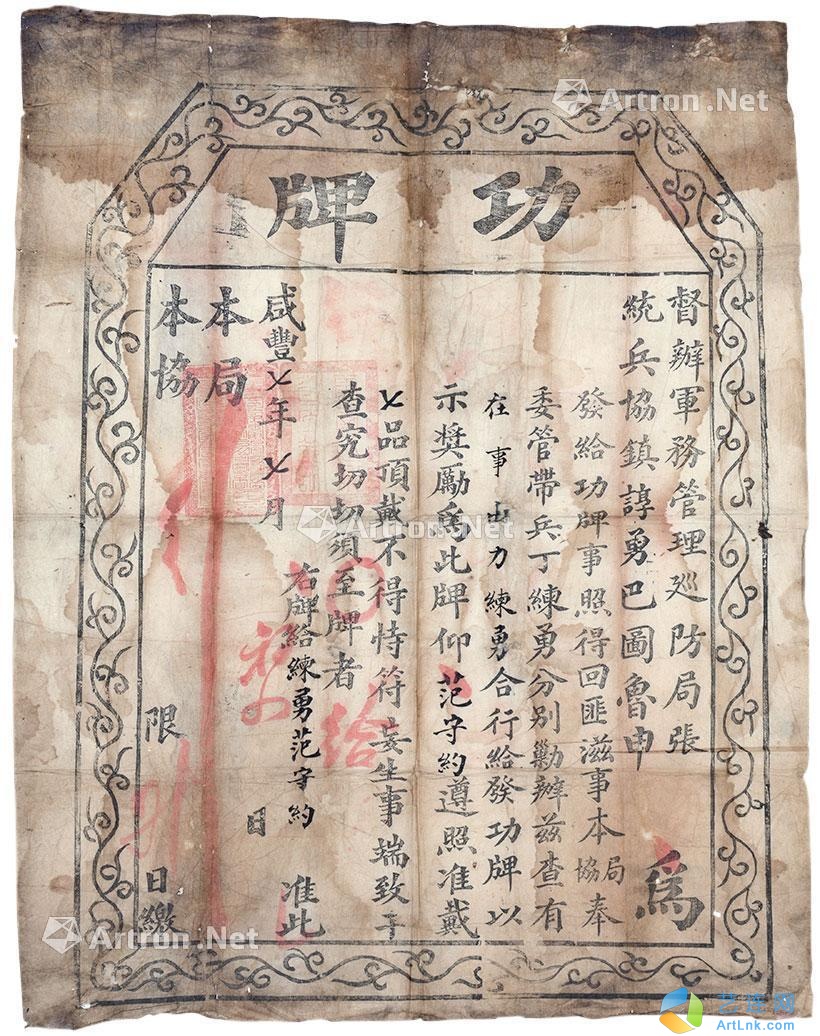 功牌
督辦軍務管理巡防局張
統兵協鎮諄勇巴圖魯申
為
發給功牌事照得回匪滋事本局協奉
委管帶兵丁練勇分別勦辦兹查有
在事出力練勇合行給發功牌以
示奨勵為此牌仰范守約遵照准戴
七品頂戴不得恃符妄生事端致干
查究切切須至牌者
右牌給練勇范守約 准此
咸豐七年七月 日
本局
本協
限 日繳
給
Artron.Net
Artron.Net
Artron.Net
ArtLnk.com